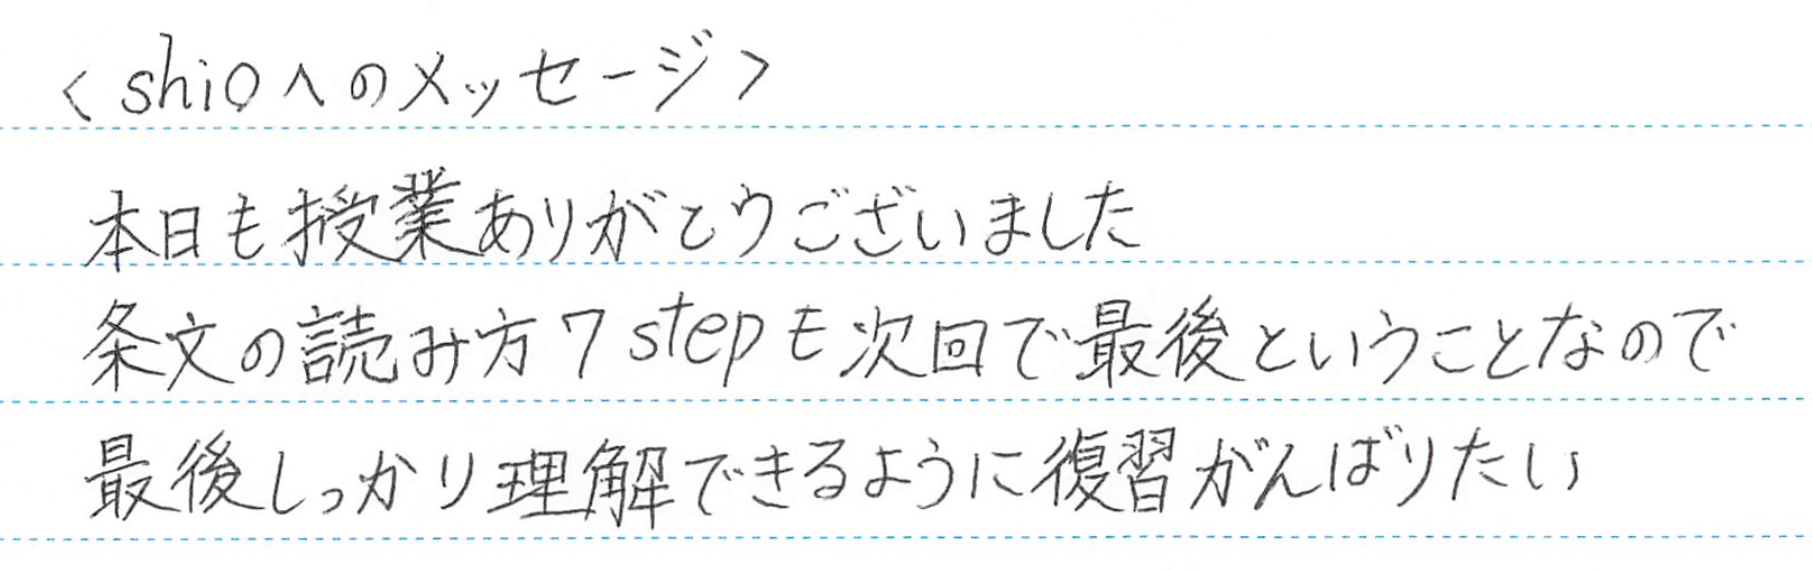 <shioへのメッセージ>
本日も授業ありがとうございました
条文の読み方7stepも次回で最後ということなので
最後しっかり理解できるように復習がんばりたい